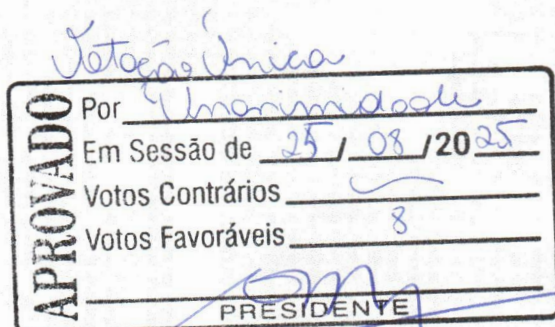 Votação Única
APROVADO
Por Unanimidade
Em Sessão de 25 / 08 /2025
Votos Contrários —
Votos Favoráveis 8
PRESIDENTE